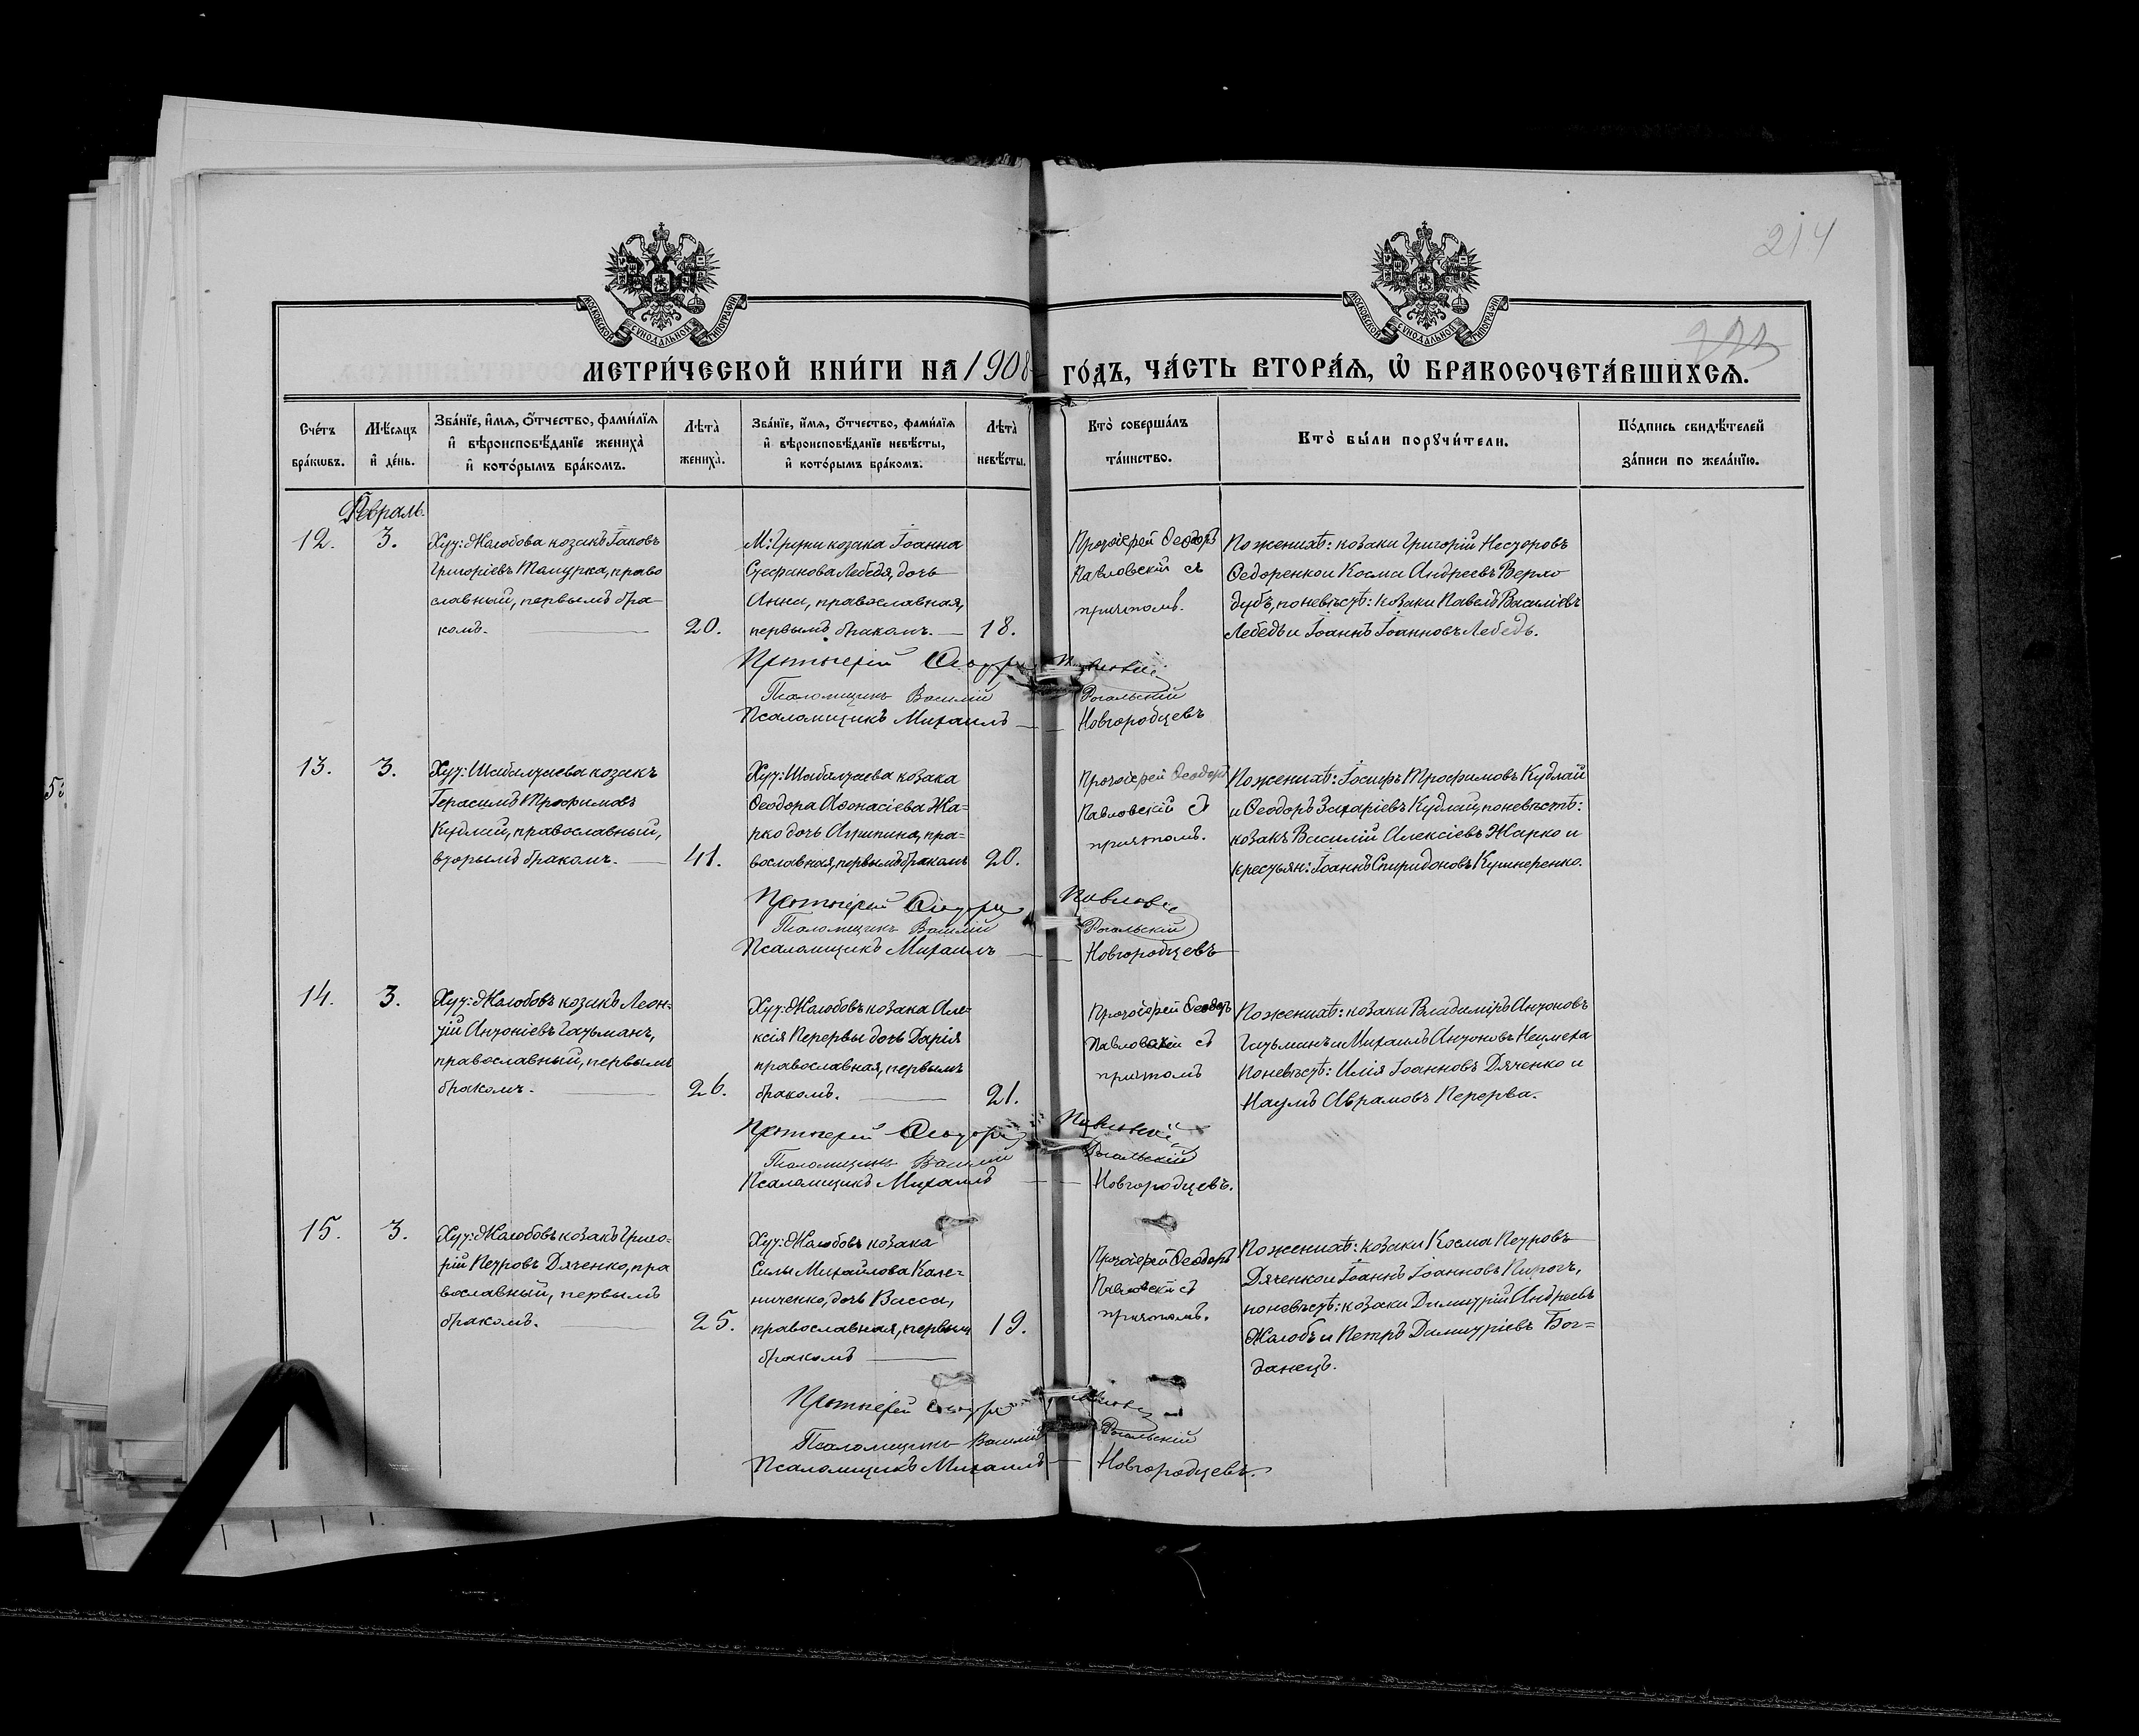 214
МОСКОВСКОЙ СУНОДАЛЬНОЙ ТИПОГРАФІИ
МОСКОВСКОЙ СУНОДАЛЬНОЙ ТИПОГРАФІИ
МЕТРИ́ЧЕСКОЙ КНИ́ГИ НА 1908 ГО́ДЪ, ЧА́СТЬ ВТОРА́Я, Ѡ҆ БРАКОСОЧЕТА́ВШИХСЯ.
Сче́тъ бра́кѡвъ.
Мѣ́сяцъ и҆ де́нь.
Зва́нїе, и҆́мя, ѻ҆́тчество, фами́лїя и҆ вѣроисповѣ́данїе жениха̀ и҆ кото́рымъ бра́комъ.
Лѣта̀ жениха̀.
Зва́нїе, и҆́мя, ѻ҆́тчество, фами́лїя и҆ вѣроисповѣ́данїе невѣ́сты, и҆ кото́рымъ бра́комъ.
Лѣта̀ невѣ́сты.
Кто̀ соверша́лъ та́инство.
Кто̀ бы́ли порꙋчи́тели.
По́дпись свидѣ́телей за́писи по жела́нїю.
Февраль.
12.
3.
Хут: Жолобова козакъ Іаковъ
Григоріевъ Мамурка, право
славный, первымъ бра-
комъ.
20.
М: Груни козака Іоанна
Стефанова Лебедя, дочь
Анна, православная,
первымъ бракомъ.
18.
Протоіерей Ѳеодоръ
Павловскій съ
причтомъ.
По женихѣ: козаки Григорій Несторовъ
Ѳедоренко и Косма Андреевъ Верхо
дубъ, по невѣстѣ: козаки Павелъ Василіевъ
Лебедь и Іоаннъ Іоанновъ Лебедь.
Протоіерей Ѳеодоръ Павловскій
Псаломщикъ Василій Рогальскій
Псаломщикъ Михаилъ Новгородцевъ
13.
3.
Хут: Шабалтаева козакъ
Герасимъ Трофимовъ
Кудлай, православный,
вторымъ бракомъ.
41.
Хут: Шабалтаева козака
Ѳеодора Аѳонасіева Жа-
рко дочь Агрипина, пра-
вославная, первымъ бракомъ
20.
Протоіерей Ѳеодоръ
Павловскій съ
причтомъ.
По женихѣ: Іосифъ Трофимовъ Кудлай
и Ѳеодоръ Захаріевъ Кудлай, по невѣстѣ:
козакъ Василій Алексіевъ Жарко и
крестьян: Іоаннъ Спиридоновъ Кушнеренко.
Протоіерей Ѳеодоръ Павловскій
Псаломщикъ Василій Рогальскій
Псаломщикъ Михаилъ Новгородцевъ
14.
3.
Хут: Жолобовъ козакъ Леон-
тій Антоніевъ Гатьманъ,
православный, первымъ
бракомъ.
26.
Хут: Жолобовъ козака Але-
ксія Перервы дочь Дарія
православная, первымъ
бракомъ.
21.
Протоіерей Ѳеодоръ
Павловскій съ
причтомъ
По женихѣ: козаки Владиміръ Антоновъ
Гатьманъ и Михаилъ Антоновъ
По невѣстѣ: Илія Іоанновъ Дяченко и
Наумъ Аврамовъ Перерва.
Протоіерей Ѳеодоръ Павловскій
Псаломщикъ Василій Рогальскій
Псаломщикъ Михаилъ Новгородцевъ.
15.
3.
Хут: Жолобовъ козакъ Григо-
рій Петровъ Дяченко, пра
вославный, первымъ
бракомъ.
25.
Хут: Жолобовъ козака
Силы Михайлова Кале-
ниченко, дочь Васса,
православная, первымъ
бракомъ
19.
Протоіерей Ѳеодоръ
Павловскій съ
причтомъ.
По женихѣ: козаки Косма Петровъ
Дяченко и Іоаннъ Іоанновъ Пирогъ,
по невѣстѣ: козаки Димитрій Андреевъ
Жолобъ и Петръ Димитріевъ Бог=
данецъ.
Протоіерей Ѳеодоръ Павловскій
Псаломщикъ Василій Рогальскій
Псаломщикъ Михаилъ Новгородцевъ.